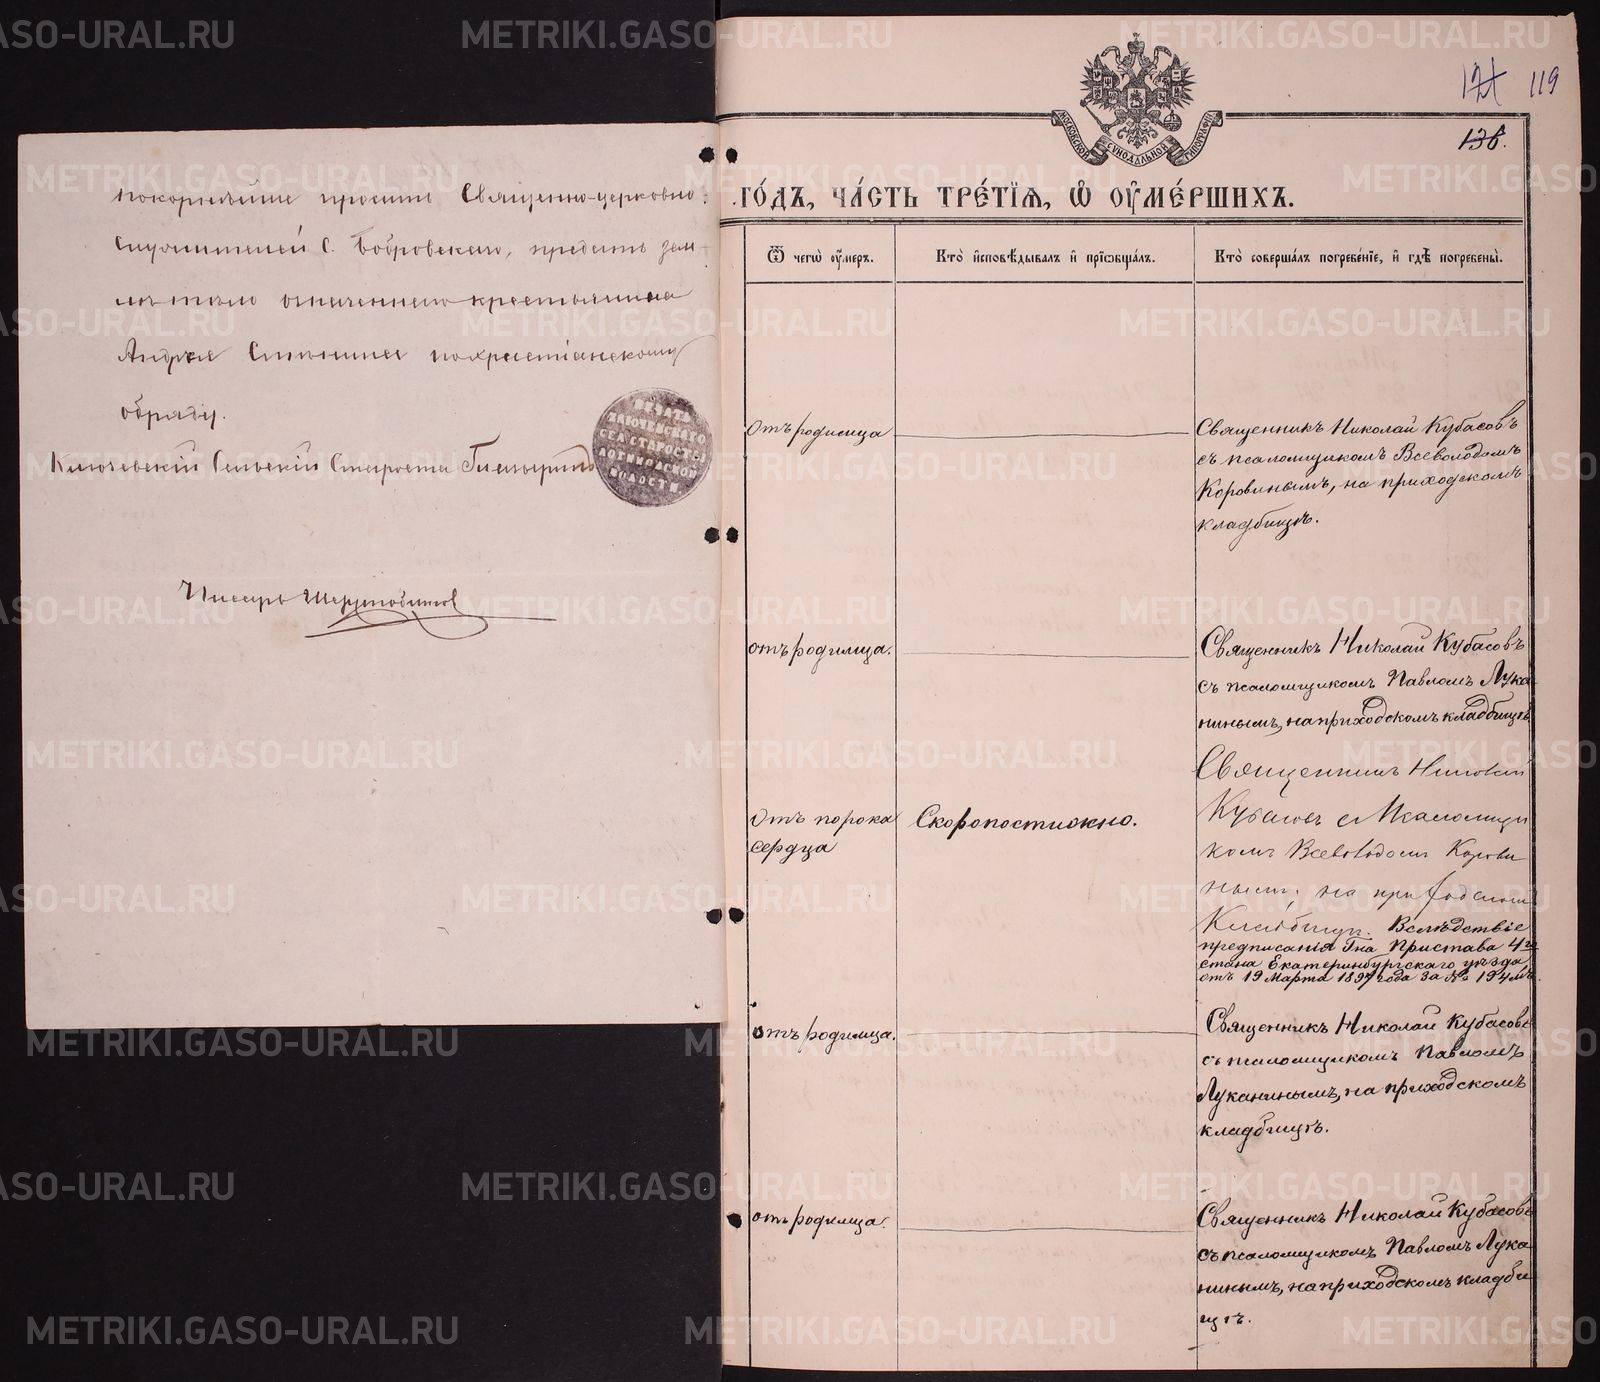 покорнѣйше просить Священно-церковно-
служителей С. Бобровскаго, предать зем-
лѣ тѣло означеннаго крестьянина
Андрея похристіанскому
обряду.
Ключевскій Сельскій Староста
Писарь
ПЕЧАТЬ
КЛЮЧЕВСКАГО
СЕЛ. СТАРОСТ.
ВОЛОСТИ
119
136.
МОСКОВСКОЙ СУНОДАЛЬНОЙ ТИПОГРАФІИ
ГО́ДЪ, ЧА́СТЬ ТРЕ́ТІЯ, Ѽ ОУ҆МЕ́РШИХЪ.
Ѿ чегѡ̀ оу҆́меръ.
Кто̀ и҆сповѣ́дывалъ и҆ приѡбща́лъ.
Кто̀ соверша́лъ погребе́ніе, и҆ гдѣ̀ погребены̀.
отъ родимца
Священникъ Николай Кубасовъ
съ псаломщикомъ Всеволодомъ
Коровинымъ, на приходскомъ
кладбищѣ.
отъ родимца.
Священникъ Николай Кубасовъ
съ псаломщикомъ Павломъ Лука
нинымъ, на приходскомъ кладбищѣ
отъ порока
сердца
Скоропостижно.
Священникъ Николай
Кубасовъ съ Псаломщи
комъ Всеволодомъ Корови
нымъ, на приходскомъ
Кладбищѣ. Вслѣдствіе
предписанія Гна Пристава 4го
стана Екатеринбургскаго уѣзда,
отъ 19 Марта 1897 года за № 194мъ.
отъ родимца.
Священникъ Николай Кубасовъ
съ псаломщикомъ Павломъ
Луканинымъ, на приходскомъ
кладбищѣ.
отъ родимца.
Священникъ Николай Кубасовъ
съ псаломщикомъ Павломъ Лука
нинымъ, на приходскомъ кладби
щѣ.
METRIKI.GASO-URAL.RU